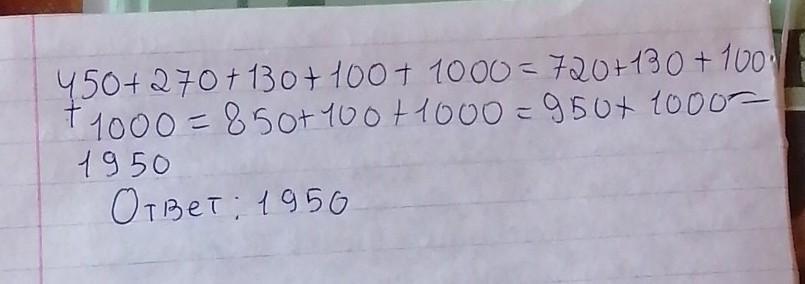 450+270+130+100+1000=720+130+100
+1000=850+100+1000=950+1000=
1950
Ответ: 1950